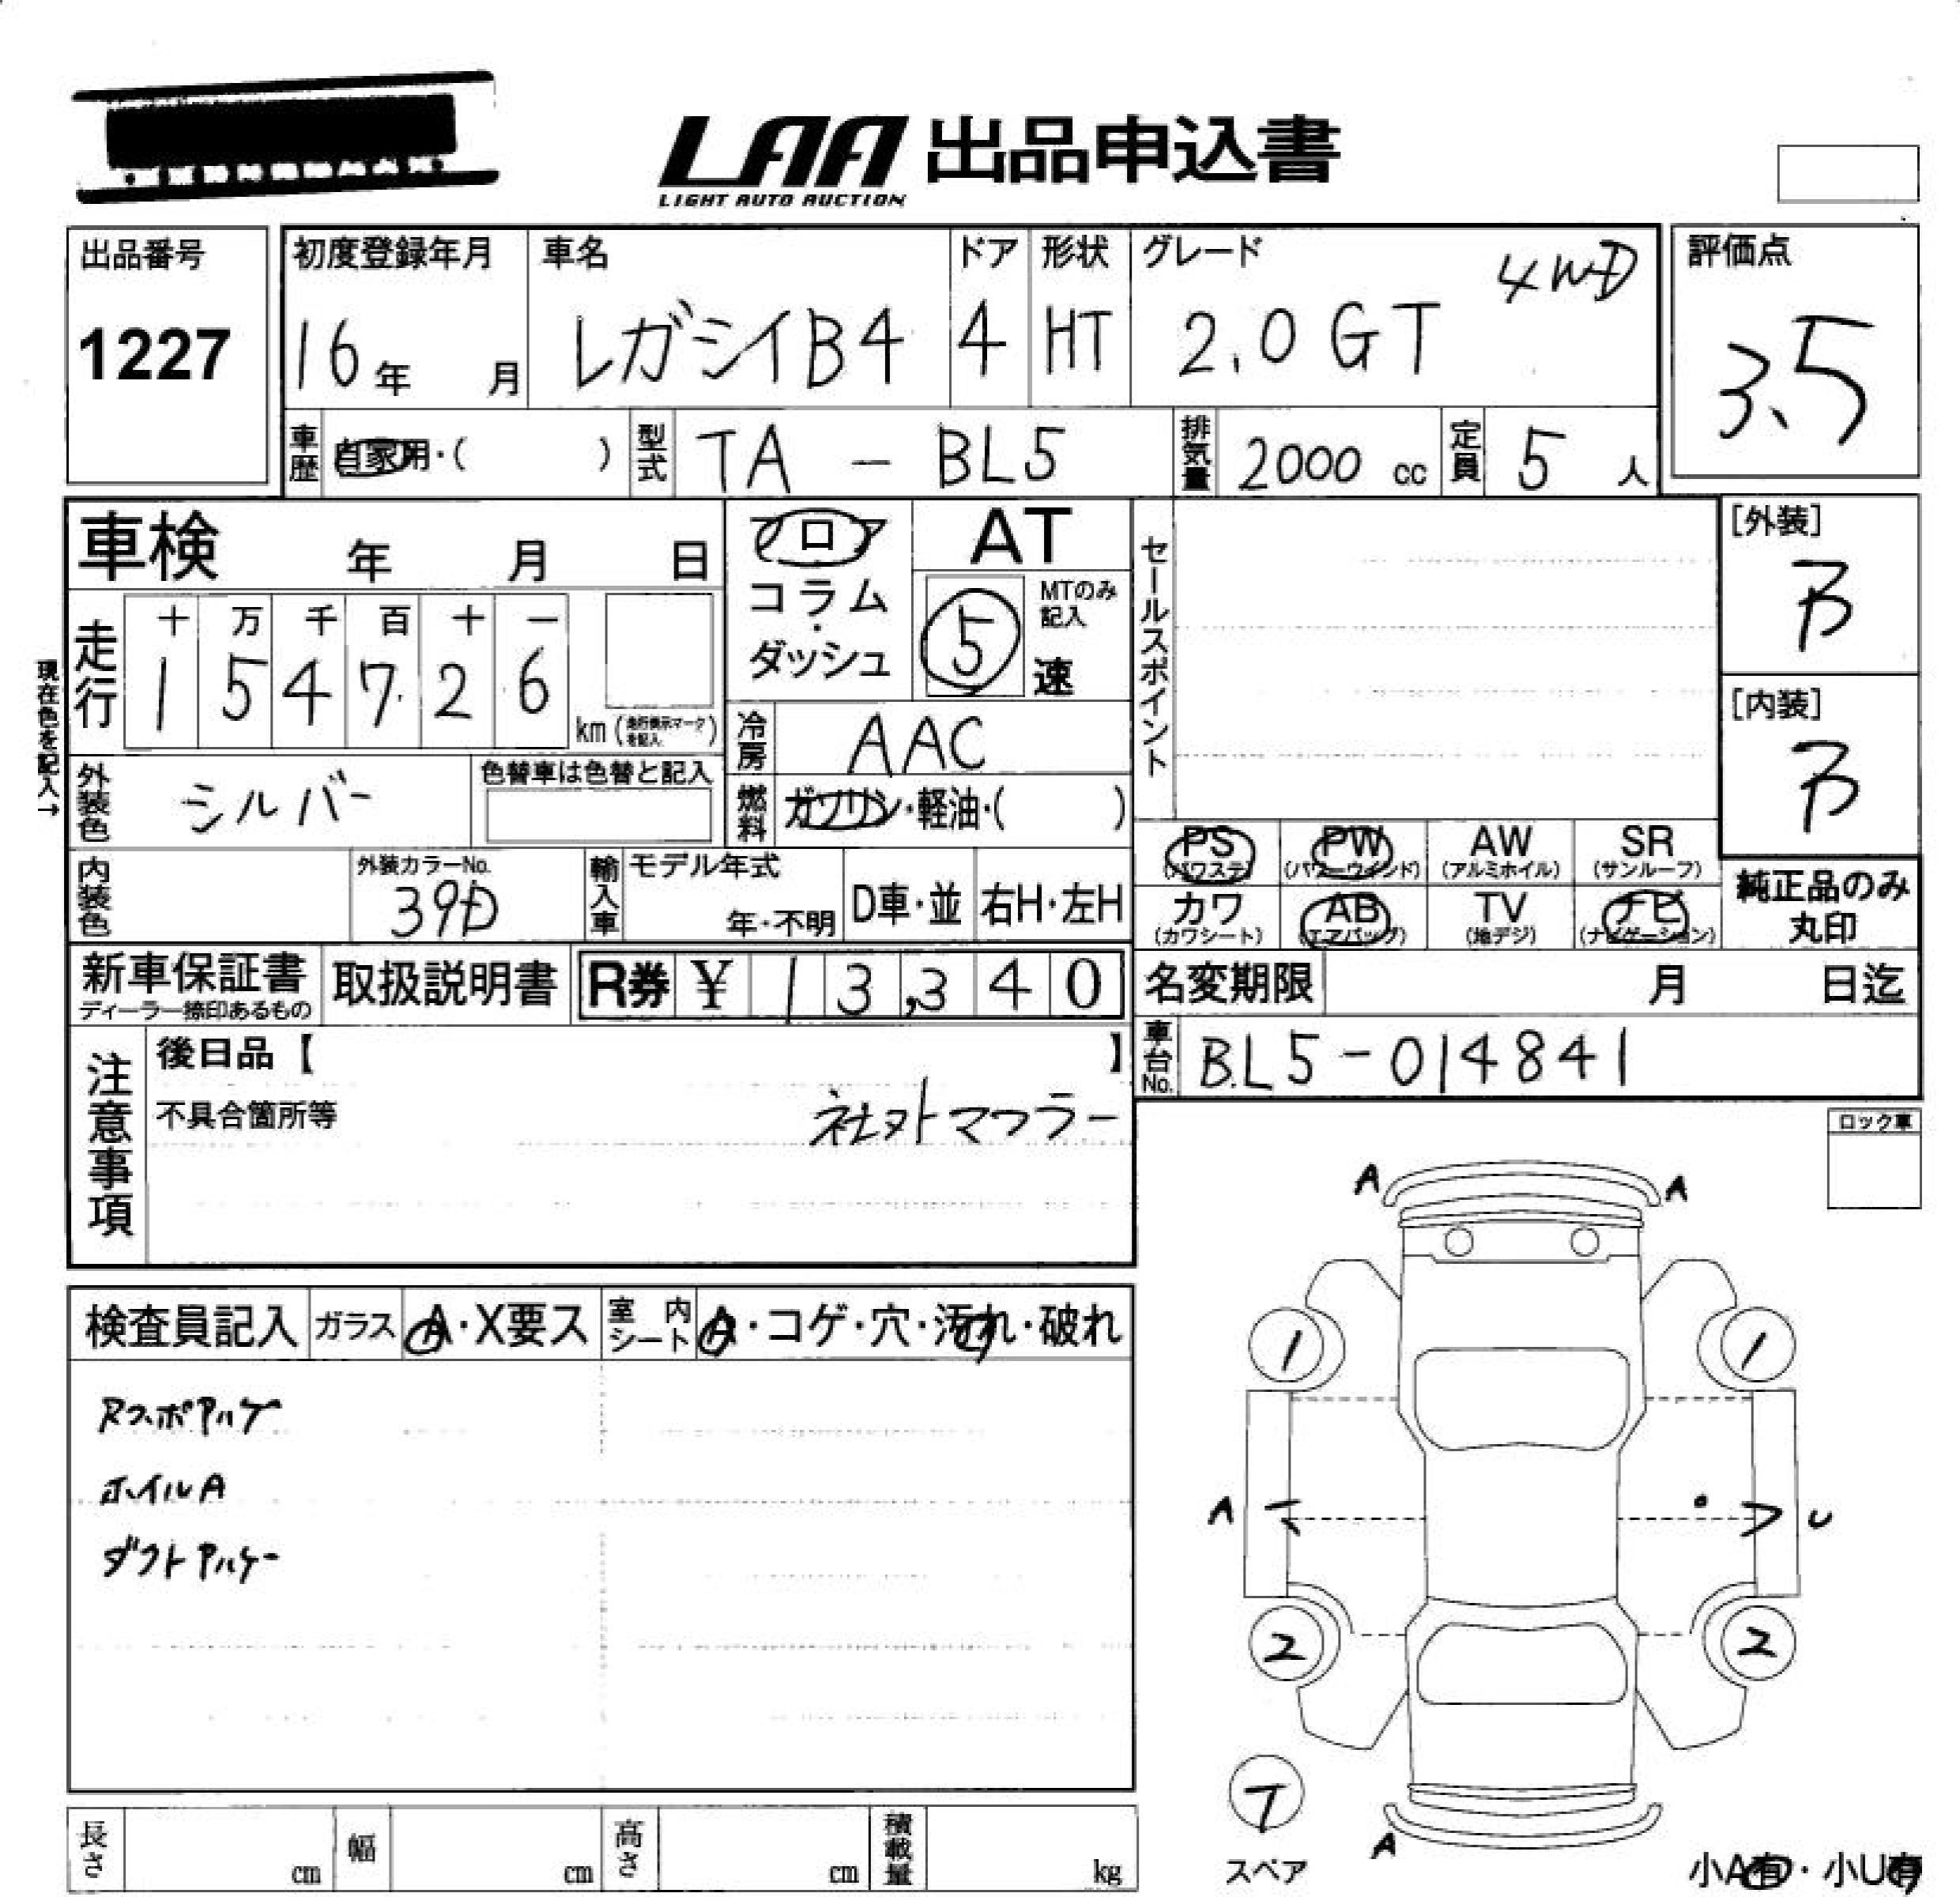 LAA 出品申込書
LIGHT AUTO AUCTION
出品番号 1227
初度登録年月 16年 月
車名 レガシイB4
ドア 4
形状 HT
グレード 2.0GT 4WD
評価点 3.5
車歴 自家用・( )
型式 TA-BL5
排気量 2000 cc
定員 5 人
車検 年 月 日
フロア
コラム
・
ダッシュ
AT
5 速
MTのみ記入
現在色を記入→
走行
十 万 千 百 十 一
1 5 4 7 2 6
km (走行表示マークを記入)
冷房 AAC
燃料 ガソリン・軽油・( )
外装色 シルバー
色替車は色替と記入
内装色
外装カラーNo. 39D
輸入車
モデル年式
年・不明
D車・並
右H・左H
セールスポイント
[外装]
B
[内装]
B
PS (パワステ)
PW (パワーウインド)
AW (アルミホイル)
SR (サンルーフ)
カワ (カワシート)
AB (エアバッグ)
TV (地デジ)
ナビ (ナビゲーション)
純正品のみ
丸印
新車保証書
ディーラー捺印あるもの
取扱説明書
R券 ¥ 13,340
名変期限 月 日迄
車台No. BL5-014841
注意事項
後日品【 】
不具合箇所等
社外マフラー
ロック車
検査員記入
ガラス A・X要ス
室内シート A・コゲ・穴・汚れ・破れ
ホイルA
A A
1 1
A U
2 2
T
スペア
A
小A有・小U有
長さ cm
幅 cm
高さ cm
積載量 kg